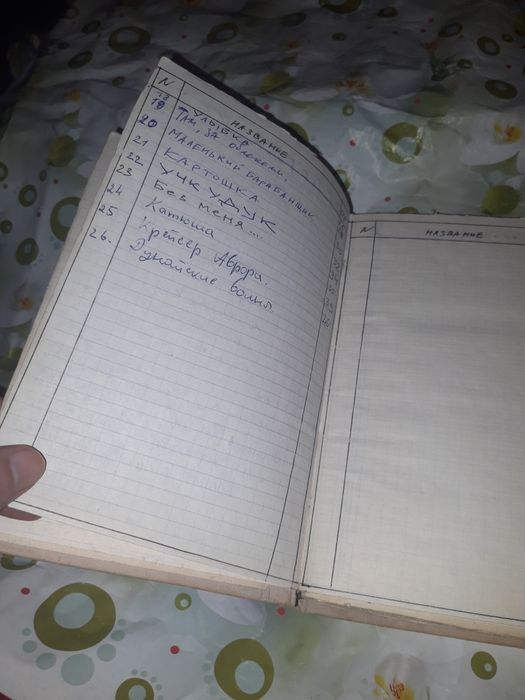 N НАЗВАНИЕ
18 УЛЫБКА
19 ТАМ, ЗА ОБЛАКАМИ.
20 МАЛЕНЬКИЙ БАРАБАНЩИК
21 КАРТОШКА
22 УЧКУДУК
23 Без меня...
24 Катюша
25 Крейсер Аврора.
26. Дунайские волны
N НАЗВАНИЕ